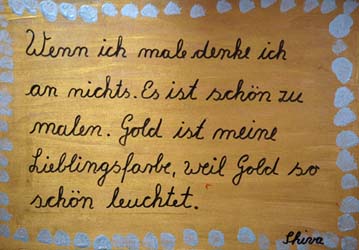 Wenn ich male denke ich
an nichts. Es ist schön zu
malen. Gold ist meine
Lieblingsfarbe, weil Gold so
schön leuchtet.
Shiva